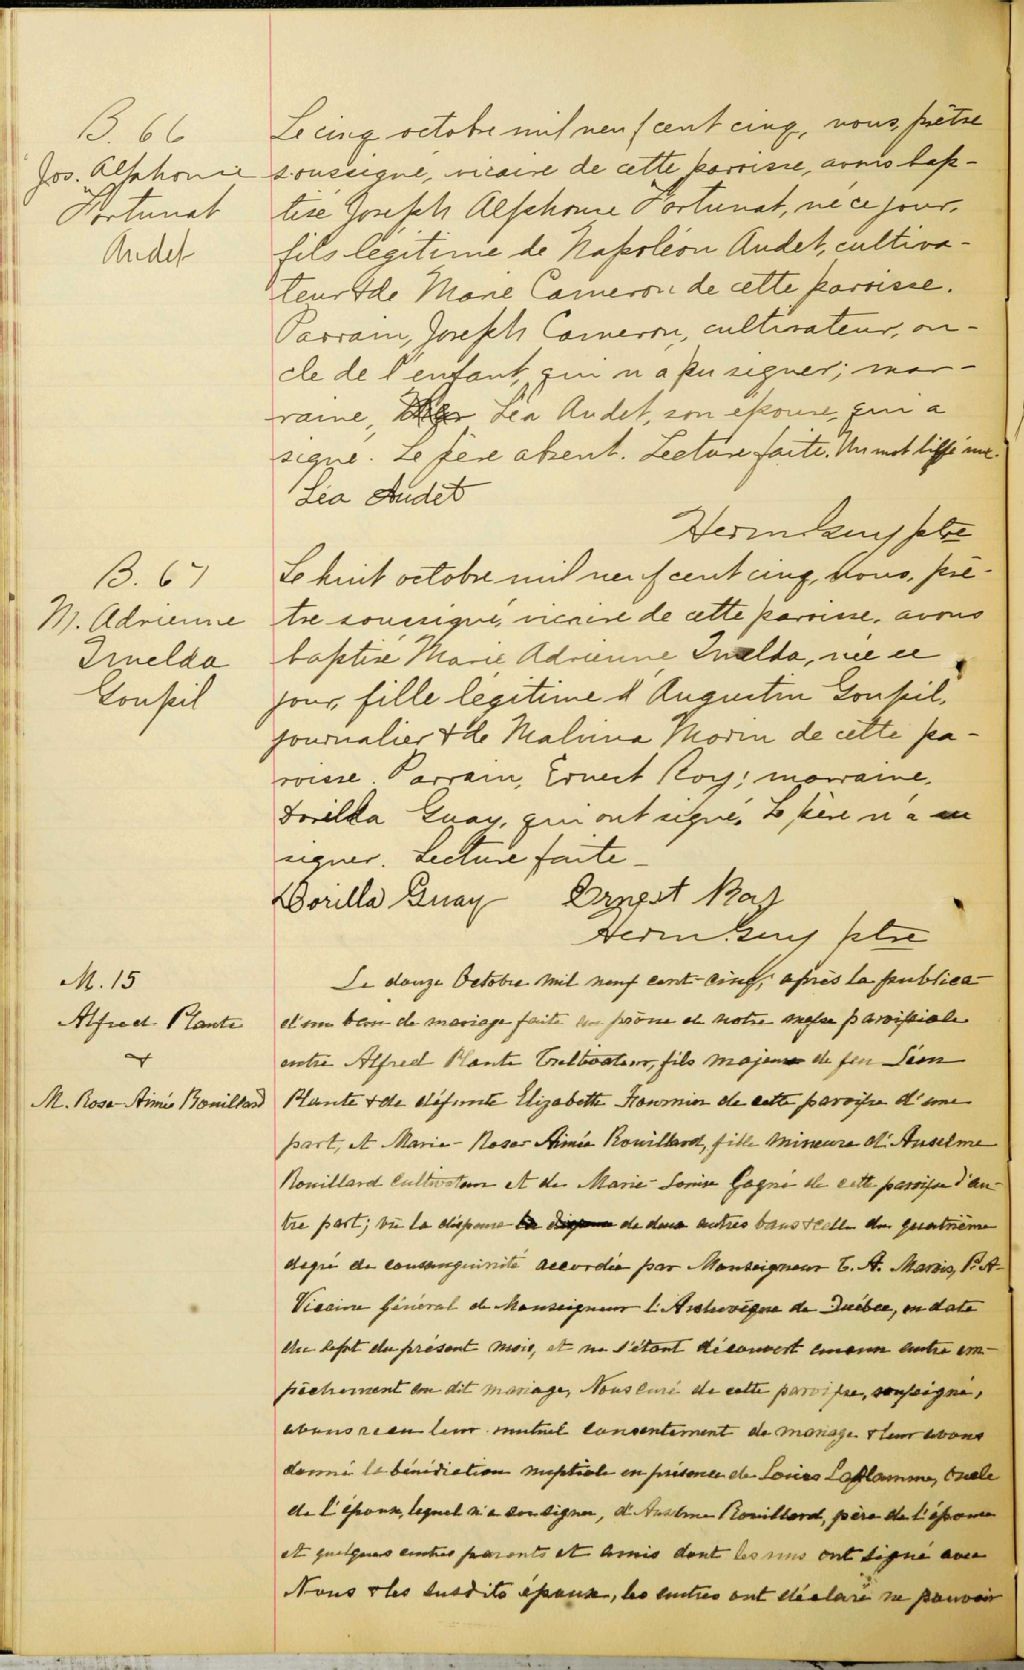 B. 66
Jos. Alphonse
Fortunat
Audet
Le cinq octobre mil neuf cent cinq, nous, prêtre
soussigné, vicaire de cette paroisse, avons bap-
tisé Joseph Alphonse Fortunat, né ce jour,
fils légitime de Napoléon Audet, cultiva-
teur & de Marie Cameron de cette paroisse.
Parrain, Joseph Cameron, cultivateur, on-
cle de l'enfant, qui n'a pu signer; mar-
raine, Léa Audet, son épouse, qui a
signé. Le père absent. Lecture faite. Un mot biffé nul.
Léa Audet
Herm. Guy ptre
B. 67
M. Adrienne
Imelda
Goupil
Le huit octobre mil neuf cent cinq, nous, prê-
tre soussigné, vicaire de cette paroisse, avons
baptisé Marie Adrienne Imelda, née ce
jour, fille légitime d'Augustin Goupil,
journalier & de Malvina Morin de cette pa-
roisse. Parrain, Ernest Roy; marraine,
Dorilla Guay, qui ont signé. Le père n'a su
signer. Lecture faite_
Dorilla Guay Ernest Roy
Herm. Guy ptre
M. 15
Alfred Plante
&
M. Rose-Aimée Rouillard
Le douze Octobre mil neuf cent-cinq, après la publica-
d'un ban de mariage faite au prône de notre messe paroissiale
entre Alfred Plante Cultivateur, fils majeur de feu Léon
Plante & de défunte Elizabeth Fournier de cette paroisse d'une
part, et Marie-Rose Aimée Rouillard, fille mineure d'Anselme
Rouillard cultivateur et de Marie-Louise Gagné de cette paroisse d'au-
tre part; vu la dispense de deux autres bans & celle du quatrième
degré de consanguinité accordée par Monseigneur C. A. Marois, P. A.
Vicaire Général de Monseigneur l'Archevêque de Québec, en date
du sept du présent mois, et ne s'étant découvert aucun autre em-
pêchement au dit mariage, Nous curé de cette paroisse, soussigné,
avons reçu leur mutuel consentement de mariage & leur avons
donné la bénédiction nuptiale en présence de Louis Laflamme, Oncle
de l'époux, lequel n'a su signer, d'Anselme Rouillard, père de l'épouse
et quelques autres parents et amis dont les uns ont signé avec
Nous & les susdits époux, les autres ont déclaré ne pouvoir